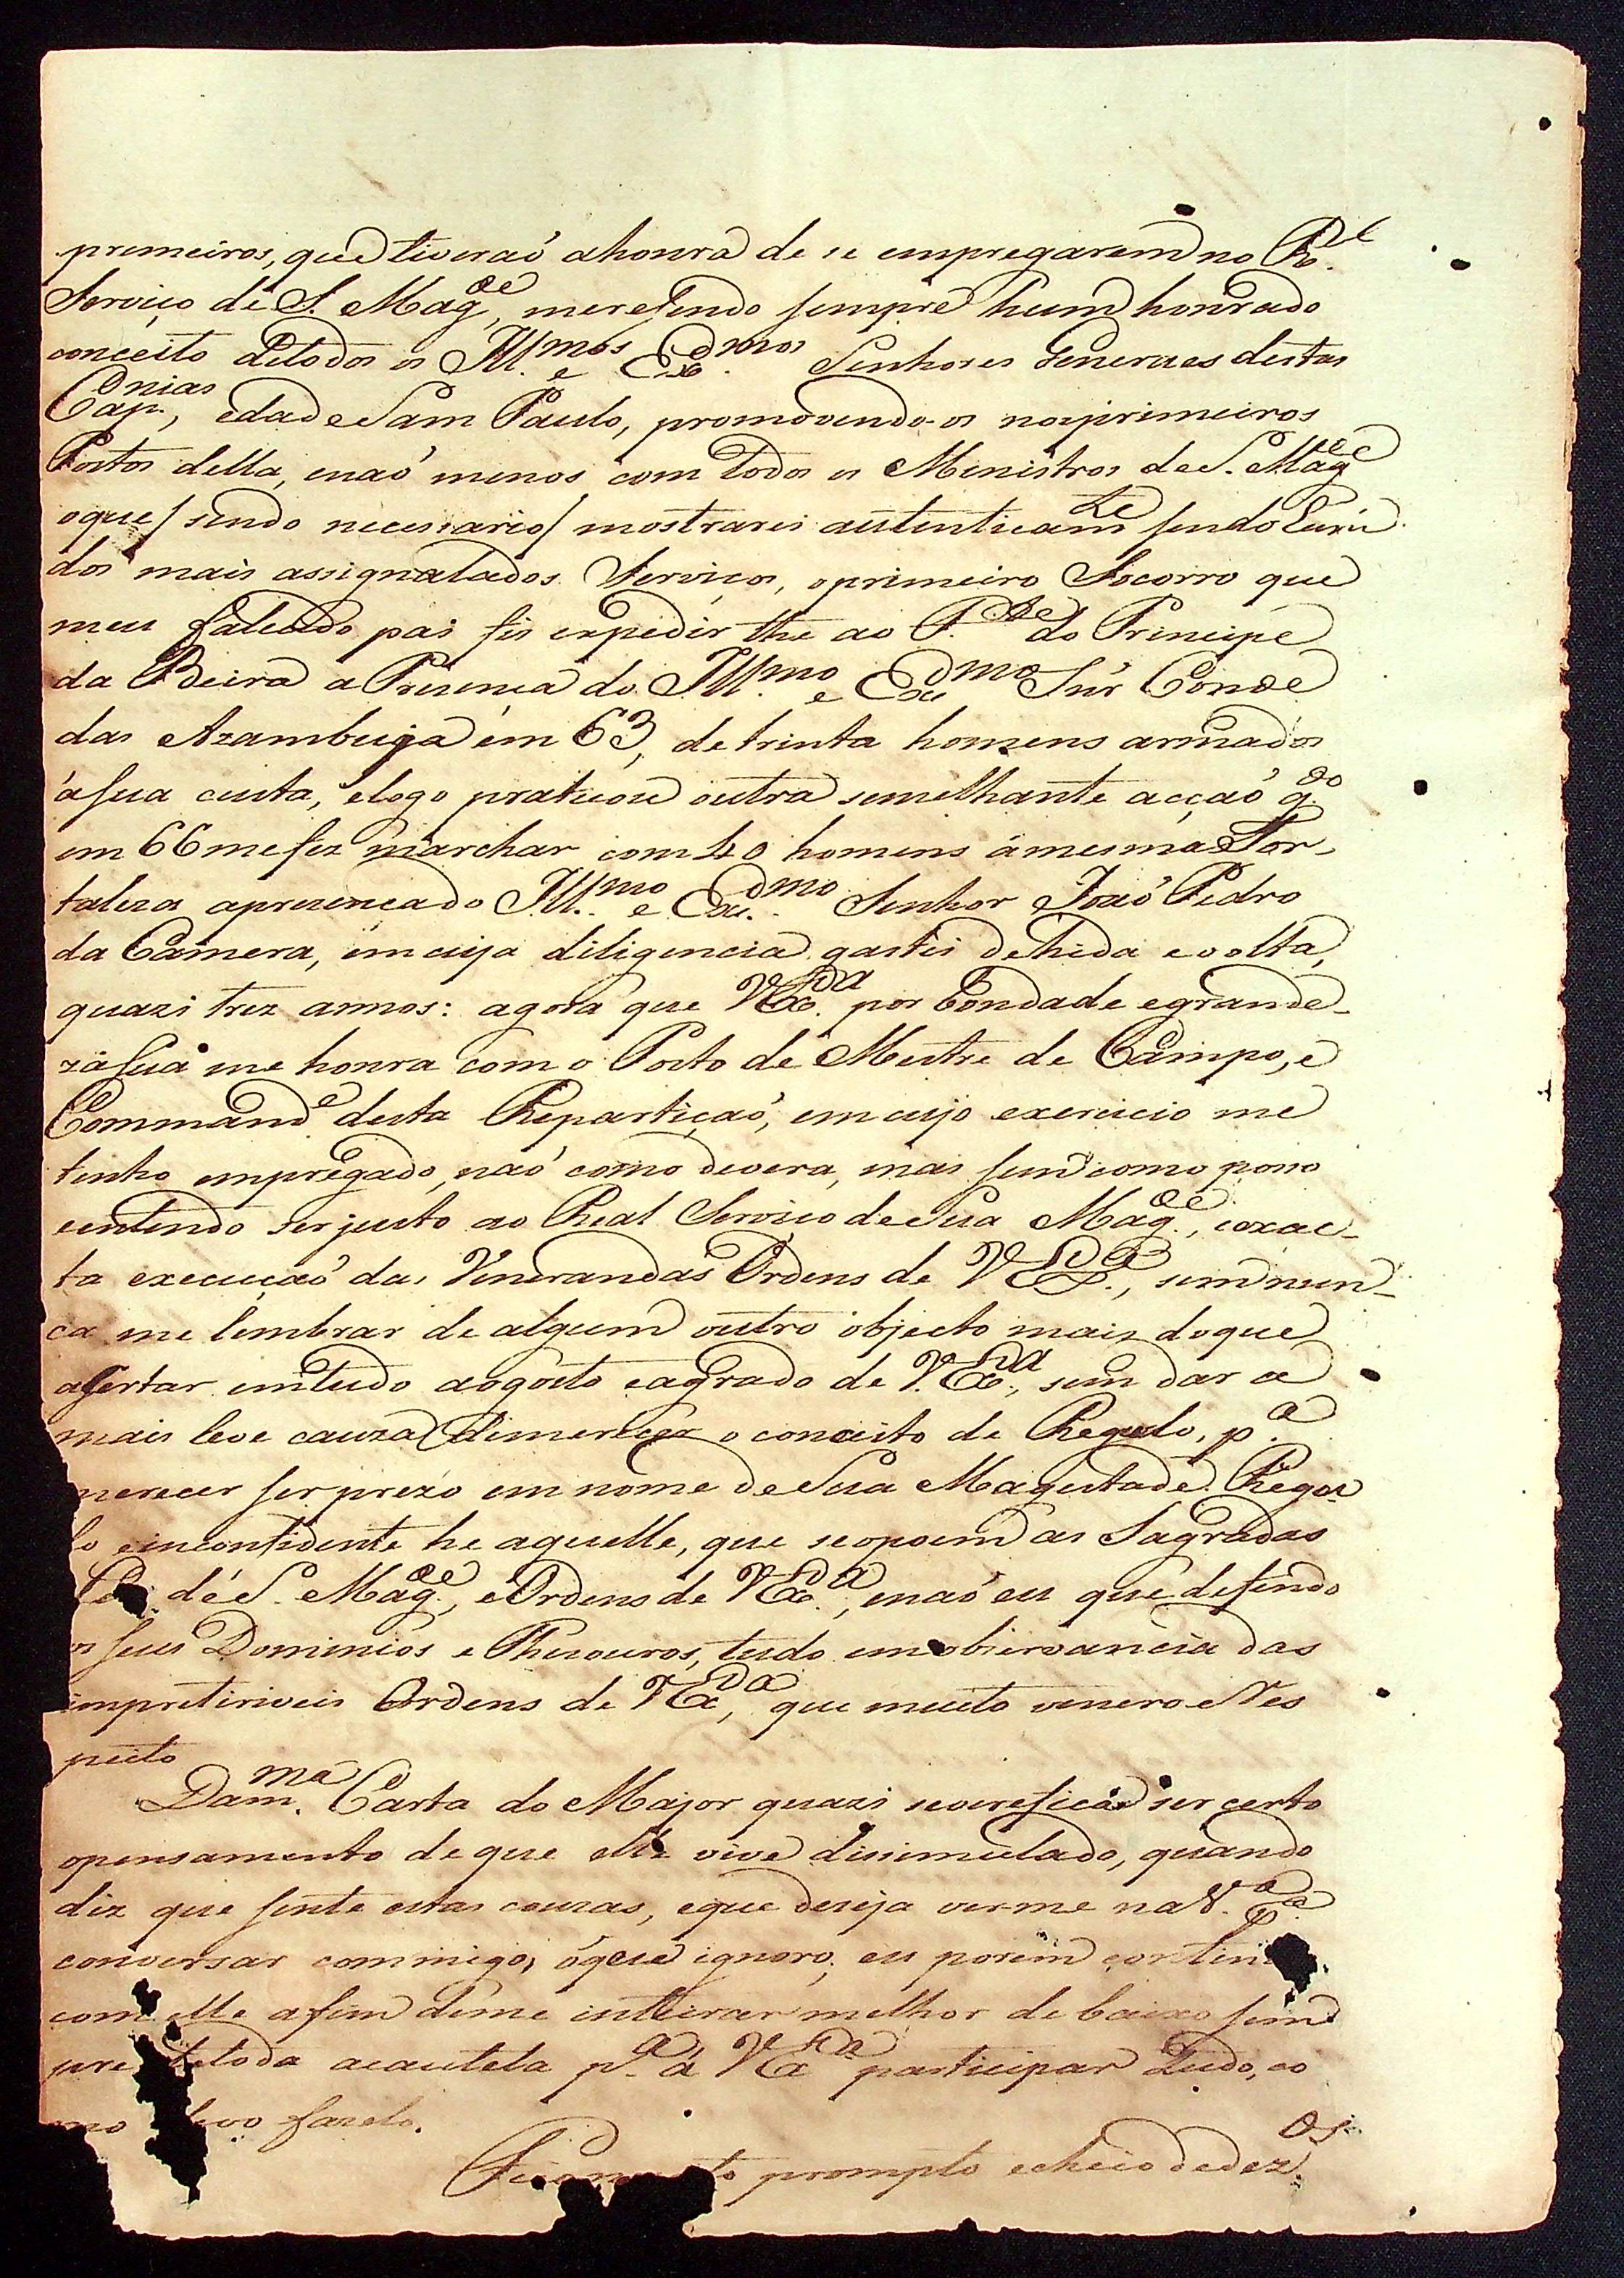 primeiros, que tiveraõ ahonra de se empregarem no R.l
Serviço de S. Mag.de, meresendo sempre hum honrado
conceito detodos os Ill.mos e Ex.mos Senhores Generaes destas
Cap.nias, edade Sam Paulo, promovendo-os nosprimeiros
Postos della, enaõ menos com todos os Ministros de S. Mag.de
oque/ sendo necessario/ mostrarei autenticam.te sendo hũ
dos mais assignalados Serviços, oprimeiro Socorro que
meu falecido pai fis expedir lhe ao F.te do Principe
da Beira a Presença do Ill.mo e Ex.mo Snr̃ Conde
das Azambuja em 63, de trinta homens armados
ásua custa, elogo praticou outra semelhante acçaõ q.do
em 66 mefez marchar com 40 homens ámesma For-
taleza apresencado Ill.mo e Ex.mo Senhor Joaõ Pedro
da Camera, emcuja diligencia gastei dehida evolta,
quazi trez annos: agora que VEx.a por bondade egrande-
za sua me honra com o Posto de Mestre de Campo, e
Command.e desta Repartiçaõ, emcujo exercicio me
tenho empregado, naõ como devera, mas sim como posso
eentendo ser justo ao Real Serviço de Sua Mag.de, eexac-
ta execuçaõ das Venerandas Ordens de VEx.a, sem nun-
ca me lembrar de algum outro objecto mais doque
asertar emtudo aogosto eagrado de V.Ex.a, sem dar a
mais leve cauza dimerecer o conceito de Regulo, p.a
merecer ser prezo em nome de Sua Magestade. Regu
lo einconfidente he aquelle, que seopoem as Sagradas
de S. Mag.de, eOrdens de VEx.a, enaõ eu que defendo
os seus Dominios e Thesouros, tudo emobservancia das
impreteriveis Ordens de VEx.a, que muito venero eRes
peito
Dam.ma Carta do Major quazi severefica ser certo
opensamento deque elle vive dissimulado, quando
diz que sente estas couzas, eque deseja ver-me na V.a p.a
conversar commigo, oque ignoro; eu porém
com elle afim deme inteirar melhor de baixo sem
pre detoda acautela p.a á VEx.a participar tudo, co
mo devo fazelo.
prompto echeio dedez.os